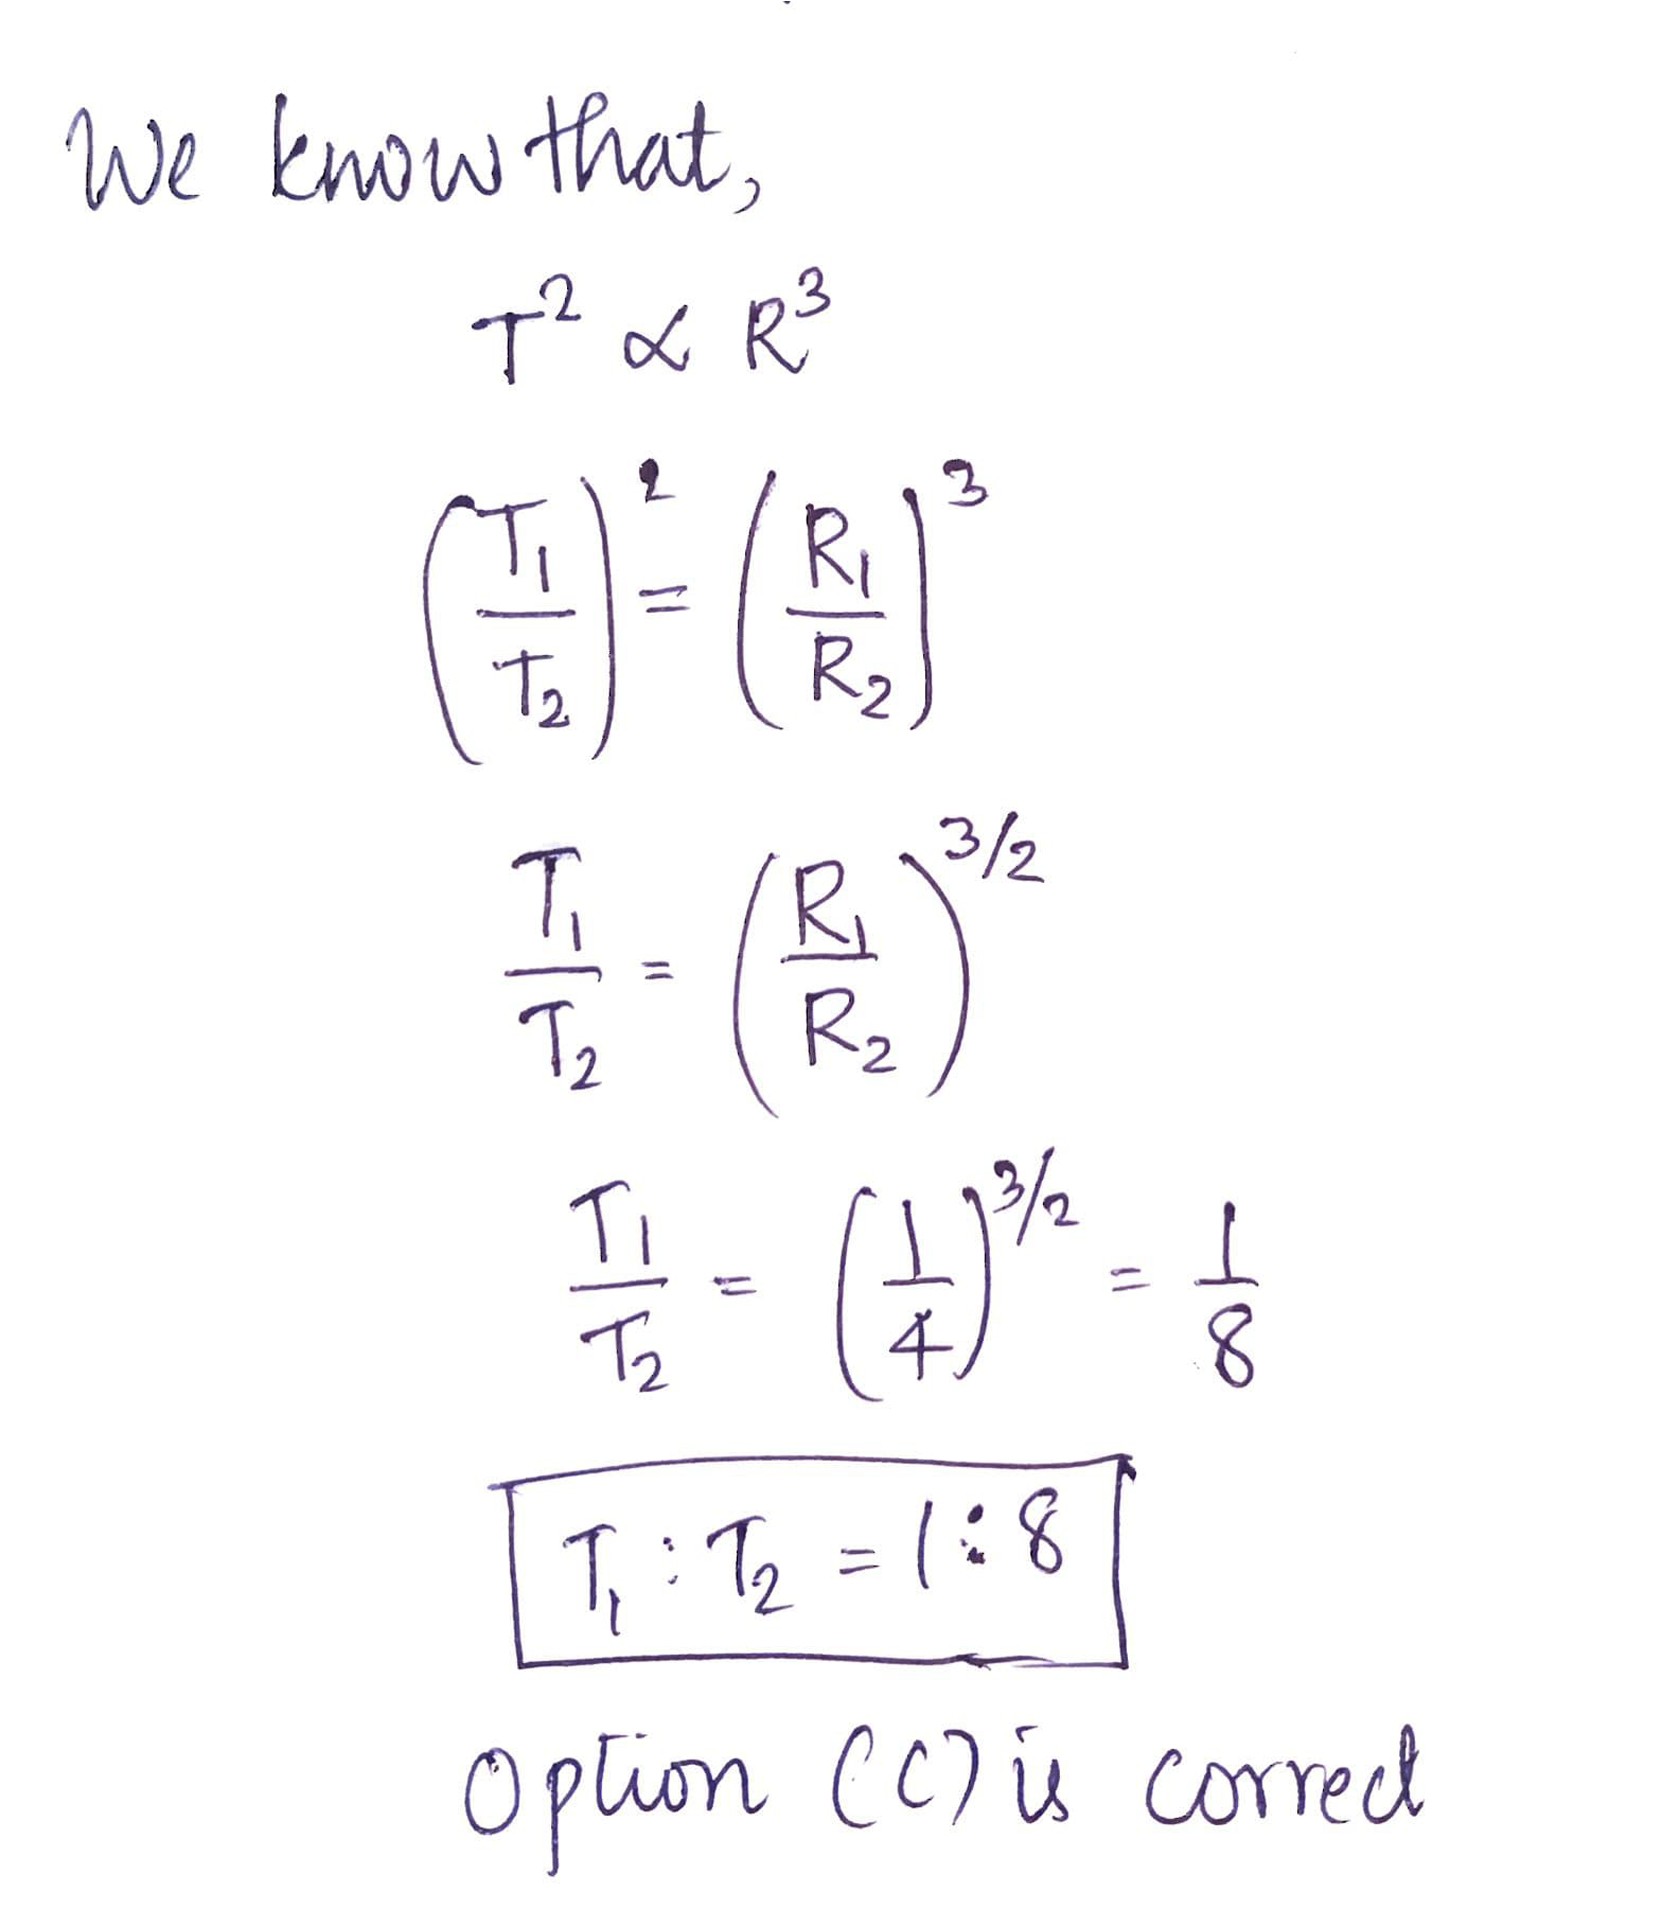 We know that,
T² ∝ R³
(T₁/T₂)² = (R₁/R₂)³
T₁/T₂ = (R₁/R₂)^3/2
T₁/T₂ = (1/4)^3/2 = 1/8
T₁ : T₂ = 1 : 8
Option (C) is correct